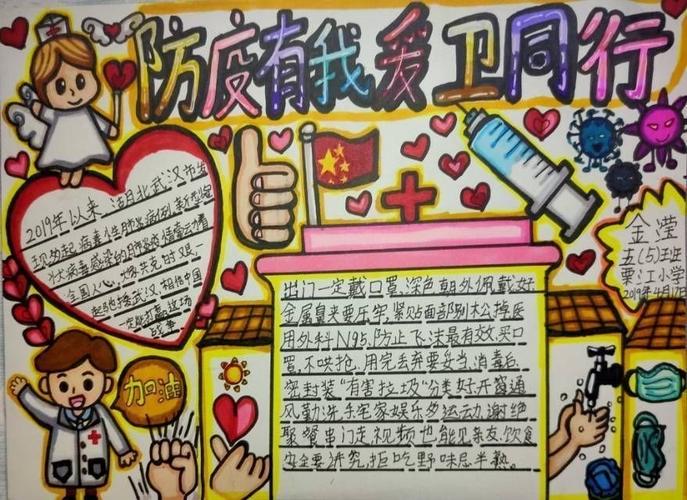 防疫有我爱卫同行
2019年以来,湖北武汉市发
现多起病毒性肺炎病例,新型冠
状病毒感染的肺炎疫情牵动着
全国人心,
起驰援武汉,相信中国
一定能打赢这场
战争
金滢
五(5)班
栗江小学
加油
出门一定戴口罩,深色朝外佩戴好
金属鼻夹要压牢,紧贴面部别松掉医
用外科N95,防止飞沫最有效,买口
罩,不哄抢,用完丢弃要妥当,消毒后
密封装"有害垃圾"分类好开窗通
风勤洗手宅家娱乐多运动,谢绝
聚餐串门走,视频也能见亲友,饮食
安全要讲究,拒吃野味忌半熟。